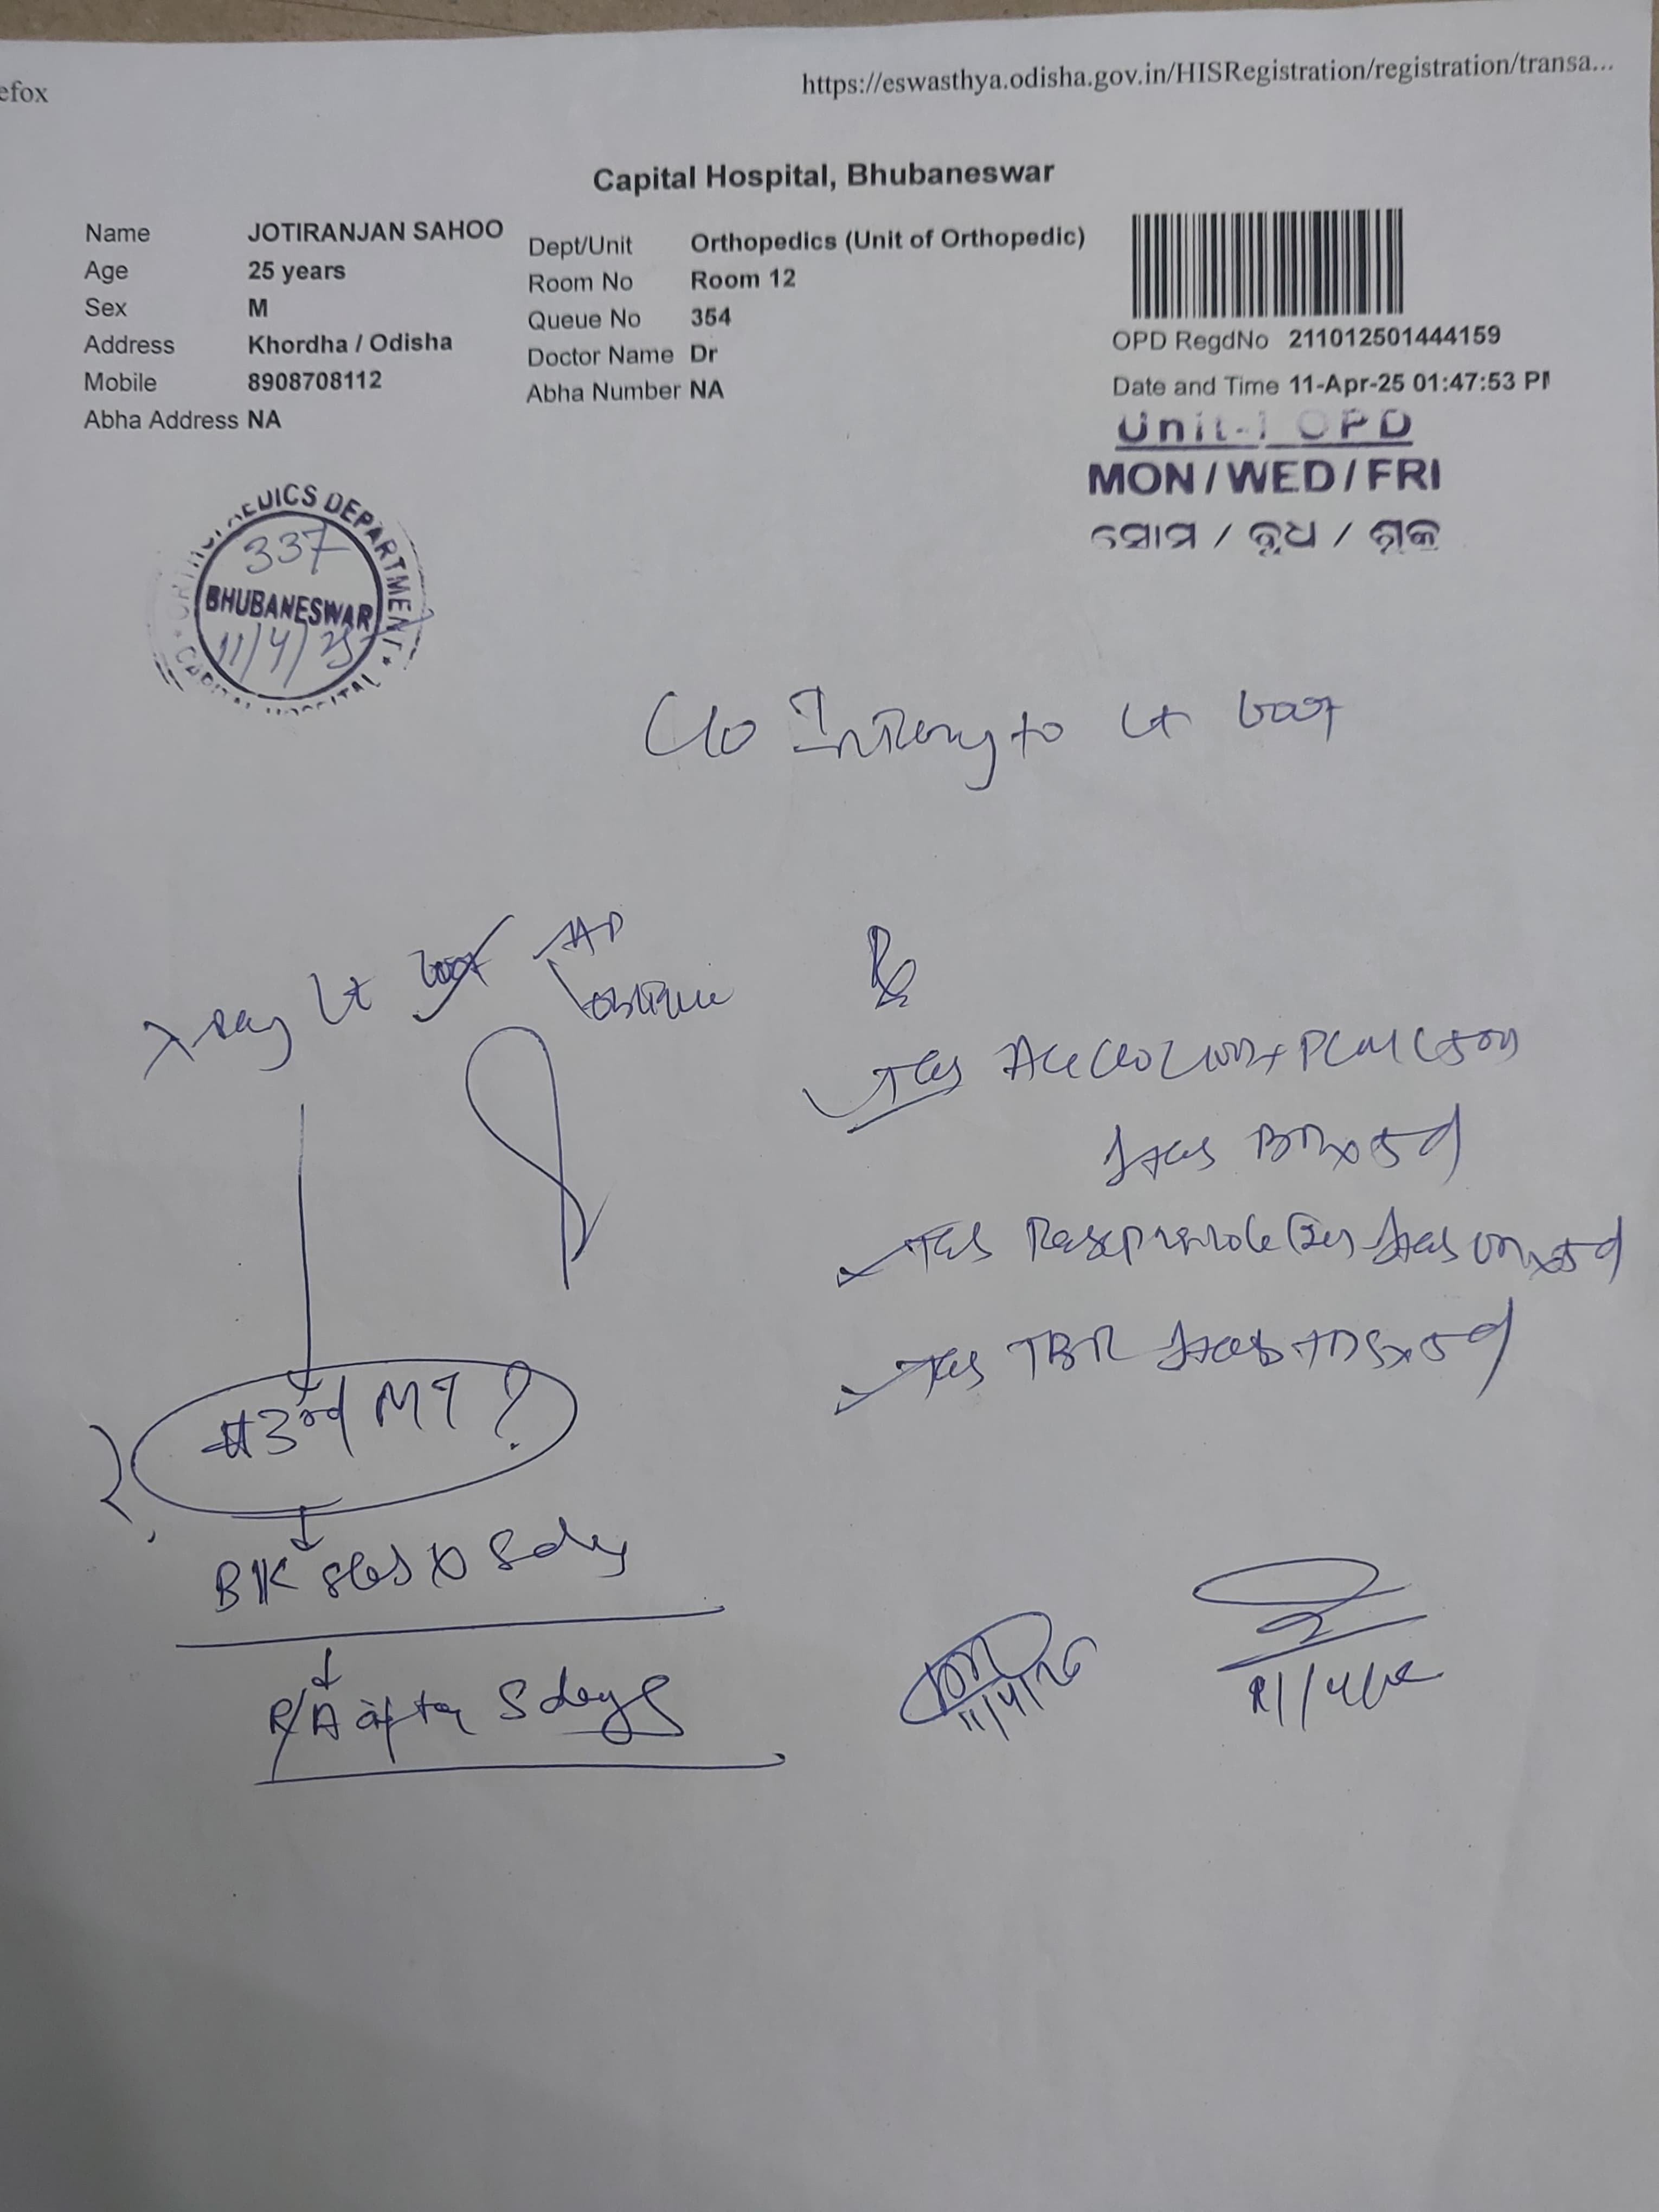 efox
https://eswasthya.odisha.gov.in/HISRegistration/registration/transa...
Capital Hospital, Bhubaneswar
Name JOTIRANJAN SAHOO
Age 25 years
Sex M
Address Khordha / Odisha
Mobile 8908708112
Abha Address NA
Dept/Unit Orthopedics (Unit of Orthopedic)
Room No Room 12
Queue No 354
Doctor Name Dr
Abha Number NA
OPD RegdNo 211012501444159
Date and Time 11-Apr-25 01:47:53 PM
Unit-I OPD
MON / WED / FRI
ସୋମ / ବୁଧ / ଶୁକ୍ର
DEPARTMENT
337
BHUBANESWAR
11/4/25
CAPITAL HOSPITAL
C/o Injury to Lt foot
X ray Lt foot AP
oblique
#3rd MT ?
BK slab x 5 days
R/A after 5 days
Rx
Tab PCM
1 tab BD x 5d
Tab Rabeprazole 1 tab OD x 5d
Tab 1 tab TDS x 5d
11/4/25